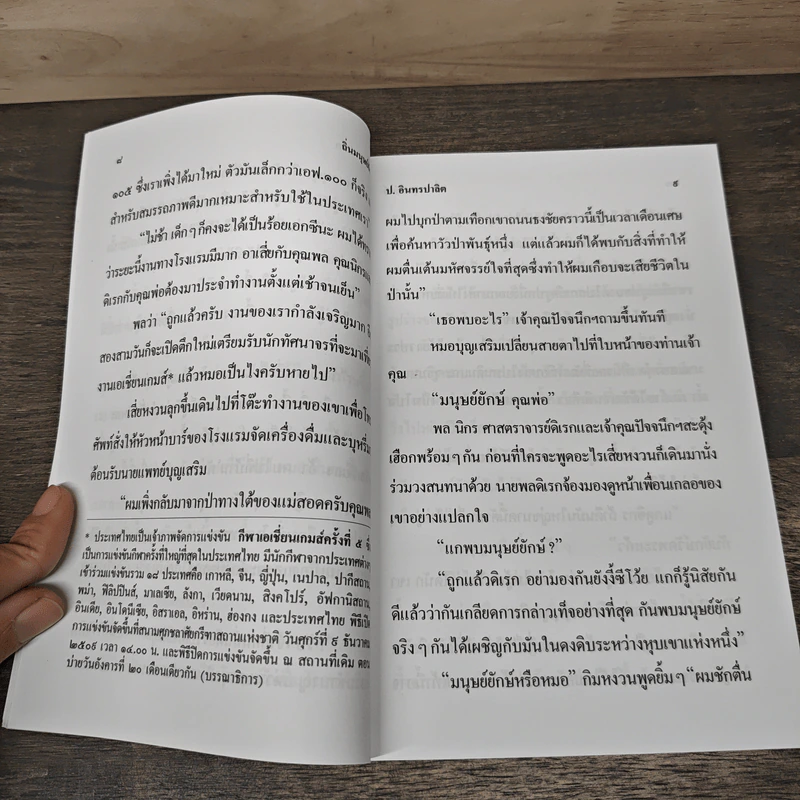 ๘
ถิ่นมนุษย์
๑๐๕ ซึ่งเราเพิ่งได้มาใหม่ ตัวมันเล็กกว่าเอฟ.๑๐๐ ก็จริง
สำหรับสมรรถภาพดีมากเหมาะสำหรับใช้ในประเทศเรา
“ไม่ช้า เด็ก ๆ ก็คงจะได้เป็นร้อยเอกซีนะ ผมได้
ว่าระยะนี้งานทางโรงแรมมีมาก อาเสี่ยกับคุณพล คุณนิกร
ดิเรกกับคุณพ่อต้องมาประจำทำงานตั้งแต่เช้าจนเย็น”
พลว่า “ถูกแล้วครับ งานของเรากำลังเจริญมาก
สองสามวันก็จะเปิดตึกใหม่เตรียมรับนักทัศนาจรที่จะมาเที่ยว
งานเอเชี่ยนเกมส์* แล้วหมอเป็นไงครับหายไป”
เสี่ยหงวนลุกขึ้นเดินไปที่โต๊ะทำงานของเขาเพื่อโท
ศัพท์สั่งให้หัวหน้าบาร์ของโรงแรมจัดเครื่องดื่มและบุหรี่
ต้อนรับนายแพทย์บุญเสริม
“ผมเพิ่งกลับมาจากป่าทางใต้ของแม่สอดครับคุณพล
* ประเทศไทยเป็นเจ้าภาพจัดการแข่งขัน กีฬาเอเชี่ยนเกมส์ครั้งที่ ๕ ซึ่ง
เป็นการแข่งขันกีฬาครั้งที่ใหญ่ที่สุดในประเทศไทย มีนักกีฬาจากประเทศต่างๆ
เข้าร่วมแข่งขันรวม ๑๘ ประเทศคือ เกาหลี, จีน, ญี่ปุ่น, เนปาล, ปากีสถาน,
พม่า, ฟิลิปปินส์, มาเลเซีย, ลังกา, เวียดนาม, สิงคโปร์, อัฟกานิสถาน,
อินเดีย, อินโดนีเซีย, อิสราเอล, อิหร่าน, ฮ่องกง และประเทศไทย พิธีเปิด
การแข่งขันจัดขึ้นที่สนามศุภชลาศัยกรีฑาสถานแห่งชาติ วันศุกร์ที่ ๙ ธันวาคม
๒๕๐๙ เวลา ๑๔.๐๐ น. และพิธีปิดการแข่งขันจัดขึ้น ณ สถานที่เดิม ตอน
บ่ายวันอังคารที่ ๒๐ เดือนเดียวกัน (บรรณาธิการ)
ป. อินทรปาลิต
๙
ผมไปบุกป่าตามเทือกเขาถนนธงชัยคราวนี้เป็นเวลาเดือนเศษ
เพื่อค้นหาวัวป่าพันธุ์หนึ่ง แต่แล้วผมก็ได้พบกับสิ่งที่ทำให้
ผมตื่นเต้นมหัศจรรย์ใจที่สุดซึ่งทำให้ผมเกือบจะเสียชีวิตใน
ป่านั้น”
“เธอพบอะไร” เจ้าคุณปัจจนึกฯถามขึ้นทันที
หมอบุญเสริมเปลี่ยนสายตาไปที่ใบหน้าของท่านเจ้า
คุณ
“มนุษย์ยักษ์ คุณพ่อ”
พล นิกร ศาสตราจารย์ดิเรกและเจ้าคุณปัจจนึกฯสะดุ้ง
เฮือกพร้อม ๆ กัน ก่อนที่ใครจะพูดอะไรเสี่ยหงวนก็เดินมานั่ง
ร่วมวงสนทนาด้วย นายพลดิเรกจ้องมองดูหน้าเพื่อนเกลอของ
เขาอย่างแปลกใจ
“แกพบมนุษย์ยักษ์ ?”
“ถูกแล้วดิเรก อย่ามองกันยังงี้ซีโว้ย แกก็รู้นิสัยกัน
ดีแล้วว่ากันเกลียดการกล่าวเท็จอย่างที่สุด กันพบมนุษย์ยักษ์
จริง ๆ กันได้เผชิญกับมันในดงดิบระหว่างหุบเขาแห่งหนึ่ง”
“มนุษย์ยักษ์หรือหมอ” กิมหงวนพูดยิ้ม ๆ “ผมชักตื่น